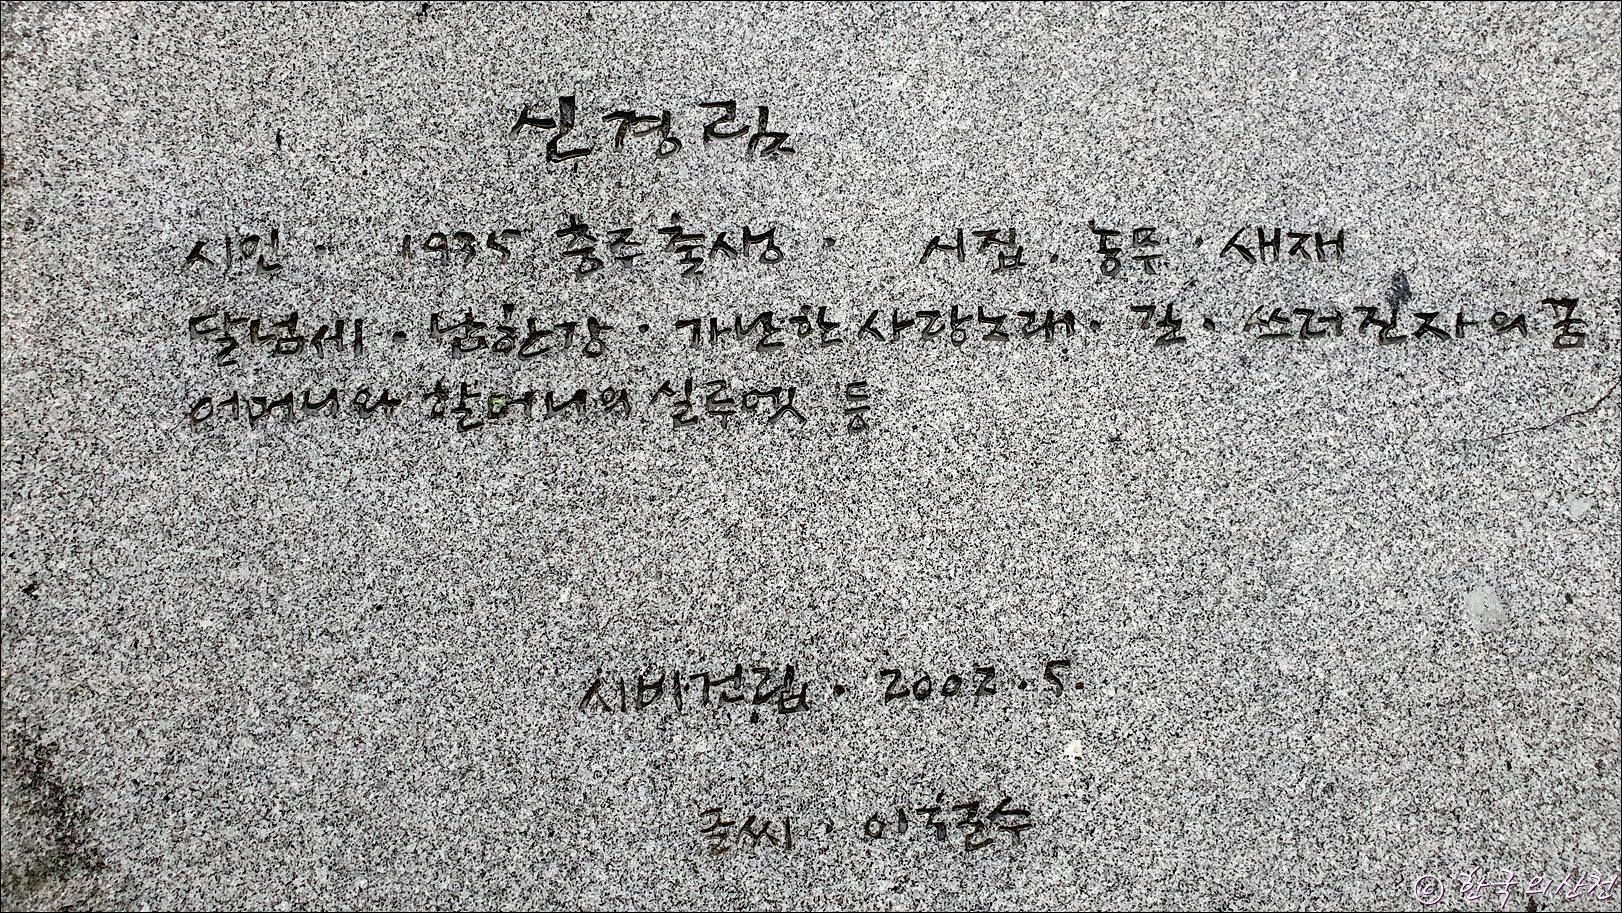 신경림
시인 · 1935 충주 출생 · 시집 · 농무 · 새재
달넘세 · 남한강 · 가난한 사랑노래 · 길 · 쓰러진자의 꿈
어머니와 할머니의 실루엣 등
시비건립 · 2002 · 5 ·
글씨 ·
© 한국의산천